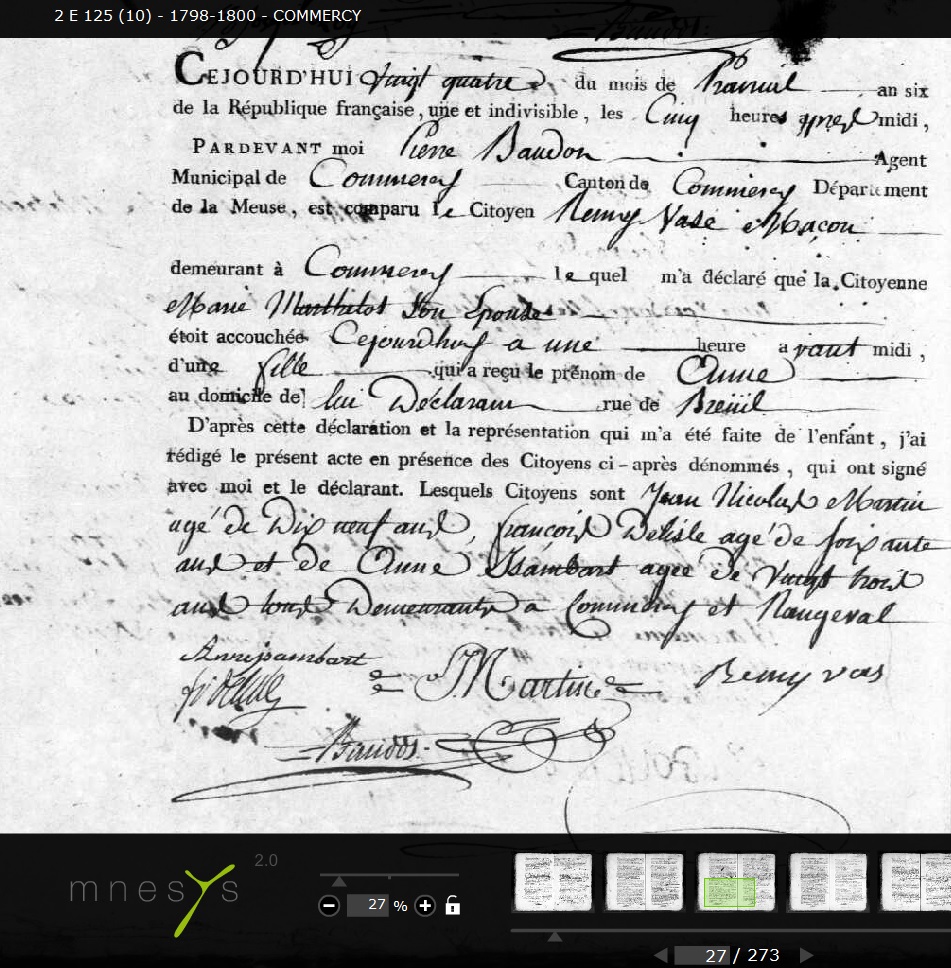 2 E 125 (10) - 1798-1800 - COMMERCY
CEJOURD'HUI Vingt quatre du mois de Prairial an six
de la République française, une et indivisible, les Cinq heures apres midi,
PARDEVANT moi Pierre Baudon Agent
Municipal de Commercy Canton de Commercy Département
de la Meuse, est comparu le Citoyen Remy Vase Maçon
demeurant à Commercy le quel m'a déclaré que la Citoyenne
Marie son Epouse
étoit accouchée Cejourdhuy a une heure avant midi,
d'une fille qui a reçu le prénom de Anne
au domicile de lui Déclarant rue de Breüil
D'après cette déclaration et la représentation qui m'a été faite de l'enfant, j'ai
rédigé le présent acte en présence des Citoyens ci-après dénommés, qui ont signé
avec moi et le déclarant. Lesquels Citoyens sont Jean Nicolas Martin
agé de Dix neuf ans, françois Delisle agé de soixante
ans et de Anne Isambart agee de Vingt trois
ans tous Demeurants a Commercy et Rangeval
Martin Remy vas
mnesys 2.0
27 %
27 / 273